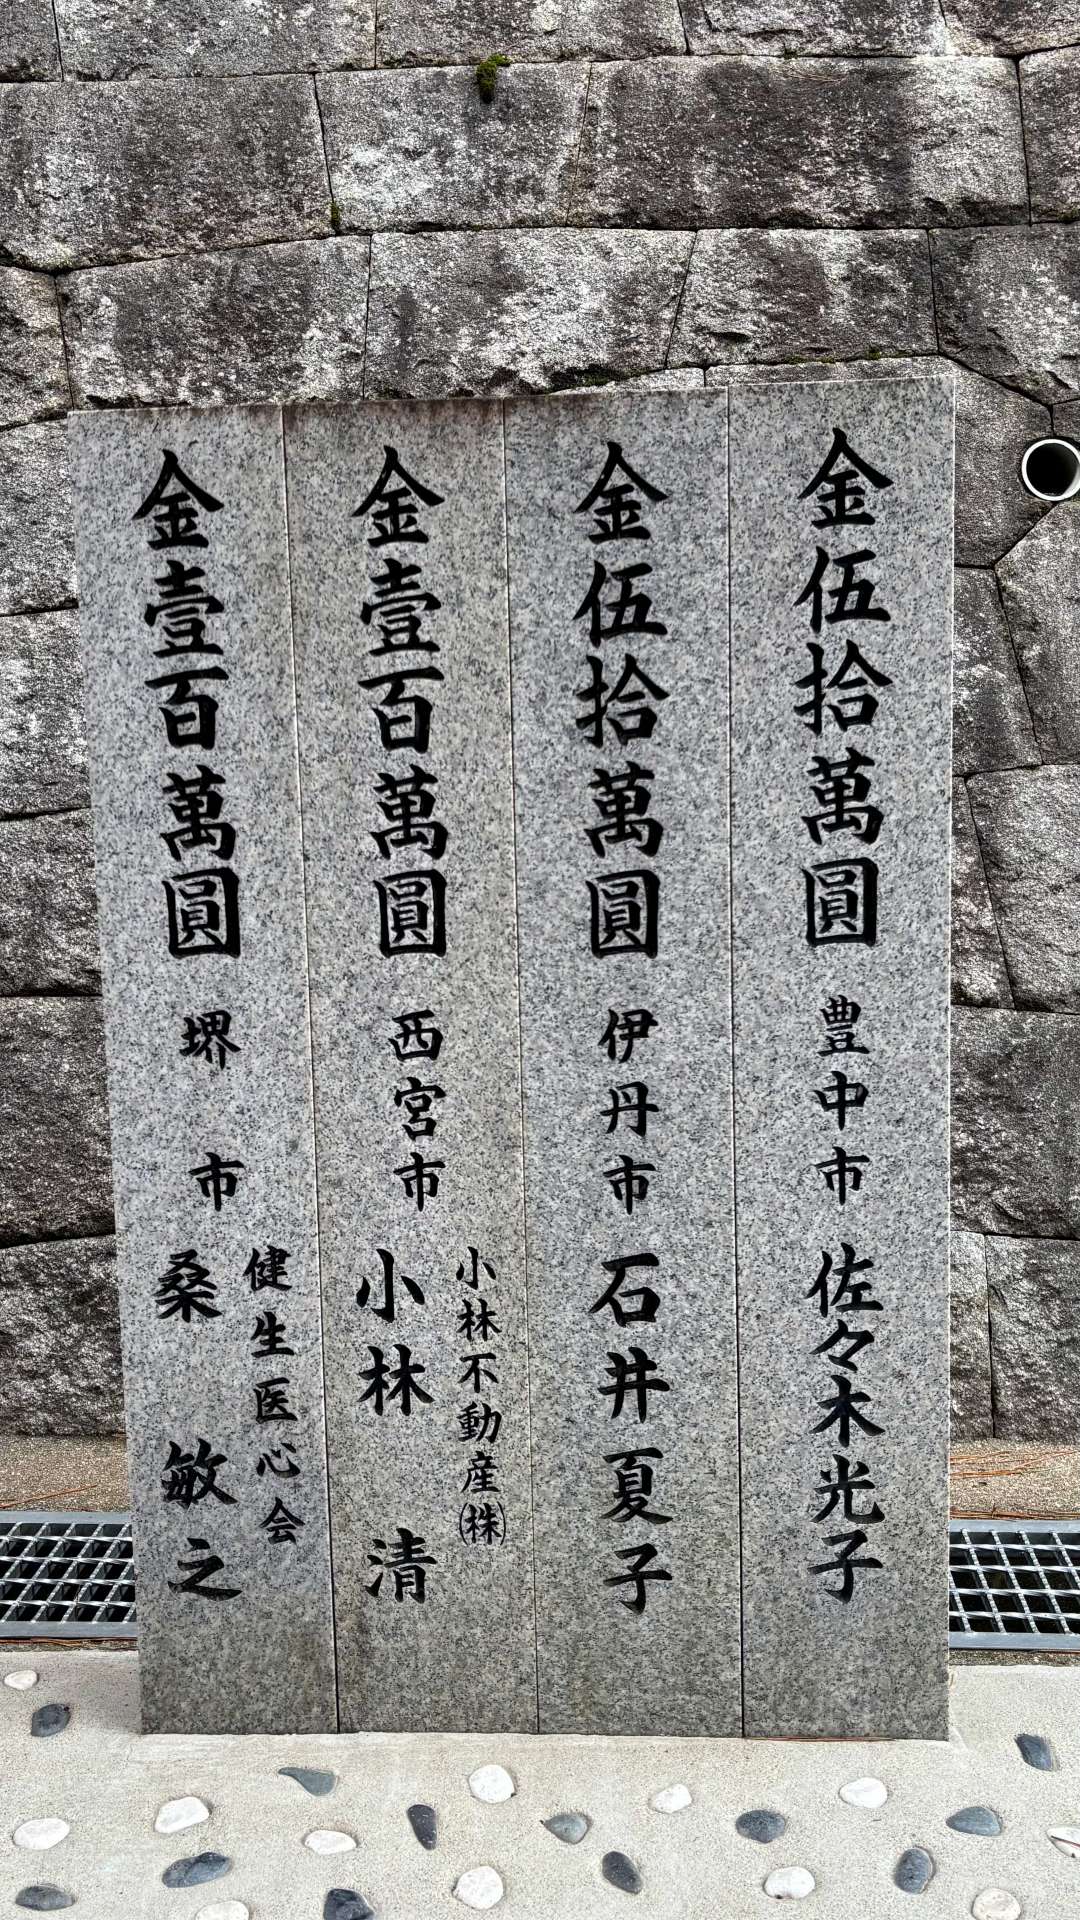 金伍拾萬圓 豊中市 佐々木光子
金伍拾萬圓 伊丹市 石井夏子
金壹百萬圓 西宮市 小林不動産㈱
小林 清
金壹百萬圓 堺市 健生医心会
桑 敏之